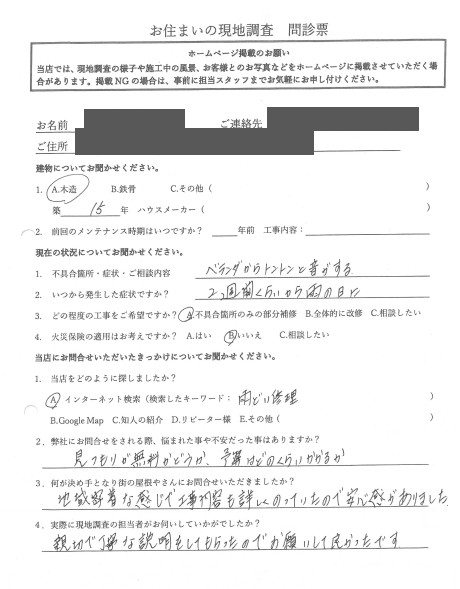 お住まいの現地調査　問診票
ホームページ掲載のお願い
当店では、現地調査の様子や施工中の風景、お客様とのお写真などをホームページに掲載させていただく場
合があります。掲載NGの場合は、事前に担当スタッフまでお気軽にお申し付けください。
お名前　　ご連絡先
ご住所
建物についてお聞かせください。
1. A.木造　B.鉄骨　C.その他（　）
築　15　年　ハウスメーカー（　）
2. 前回のメンテナンス時期はいつですか？　年前　工事内容：
現在の状況についてお聞かせください。
1. 不具合箇所・症状・ご相談内容　ベランダからトントンと音がする
2. いつから発生した症状ですか？　2，3週間くらいから雨の日に
3. どの程度の工事をご希望ですか？ A.不具合箇所のみの部分補修　B.全体的に改修　C.相談したい
4. 火災保険の適用はお考えですか？ A.はい　B.いいえ　C.相談したい
当店にお問合せいただいたきっかけについてお聞かせください。
1. 当店をどのように探しましたか？
A インターネット検索（検索したキーワード：　雨どい修理　）
B.Google Map　C.知人の紹介　D.リピーター様　E.その他（　）
2．弊社にお問合せをされる際、悩まれた事や不安だった事はありますか？
見つもりが無料かどうか、予算はどのくらいかかるか
3．何が決め手となり街の屋根やさんにお問合せいただきましたか？
地域密着な感じで工事内容も詳しくのっていたので安心感がありました
4．実際に現地調査の担当者がお伺いしていかがでしたか？
親切で丁寧な説明をしてもらったのでお願いして良かったです